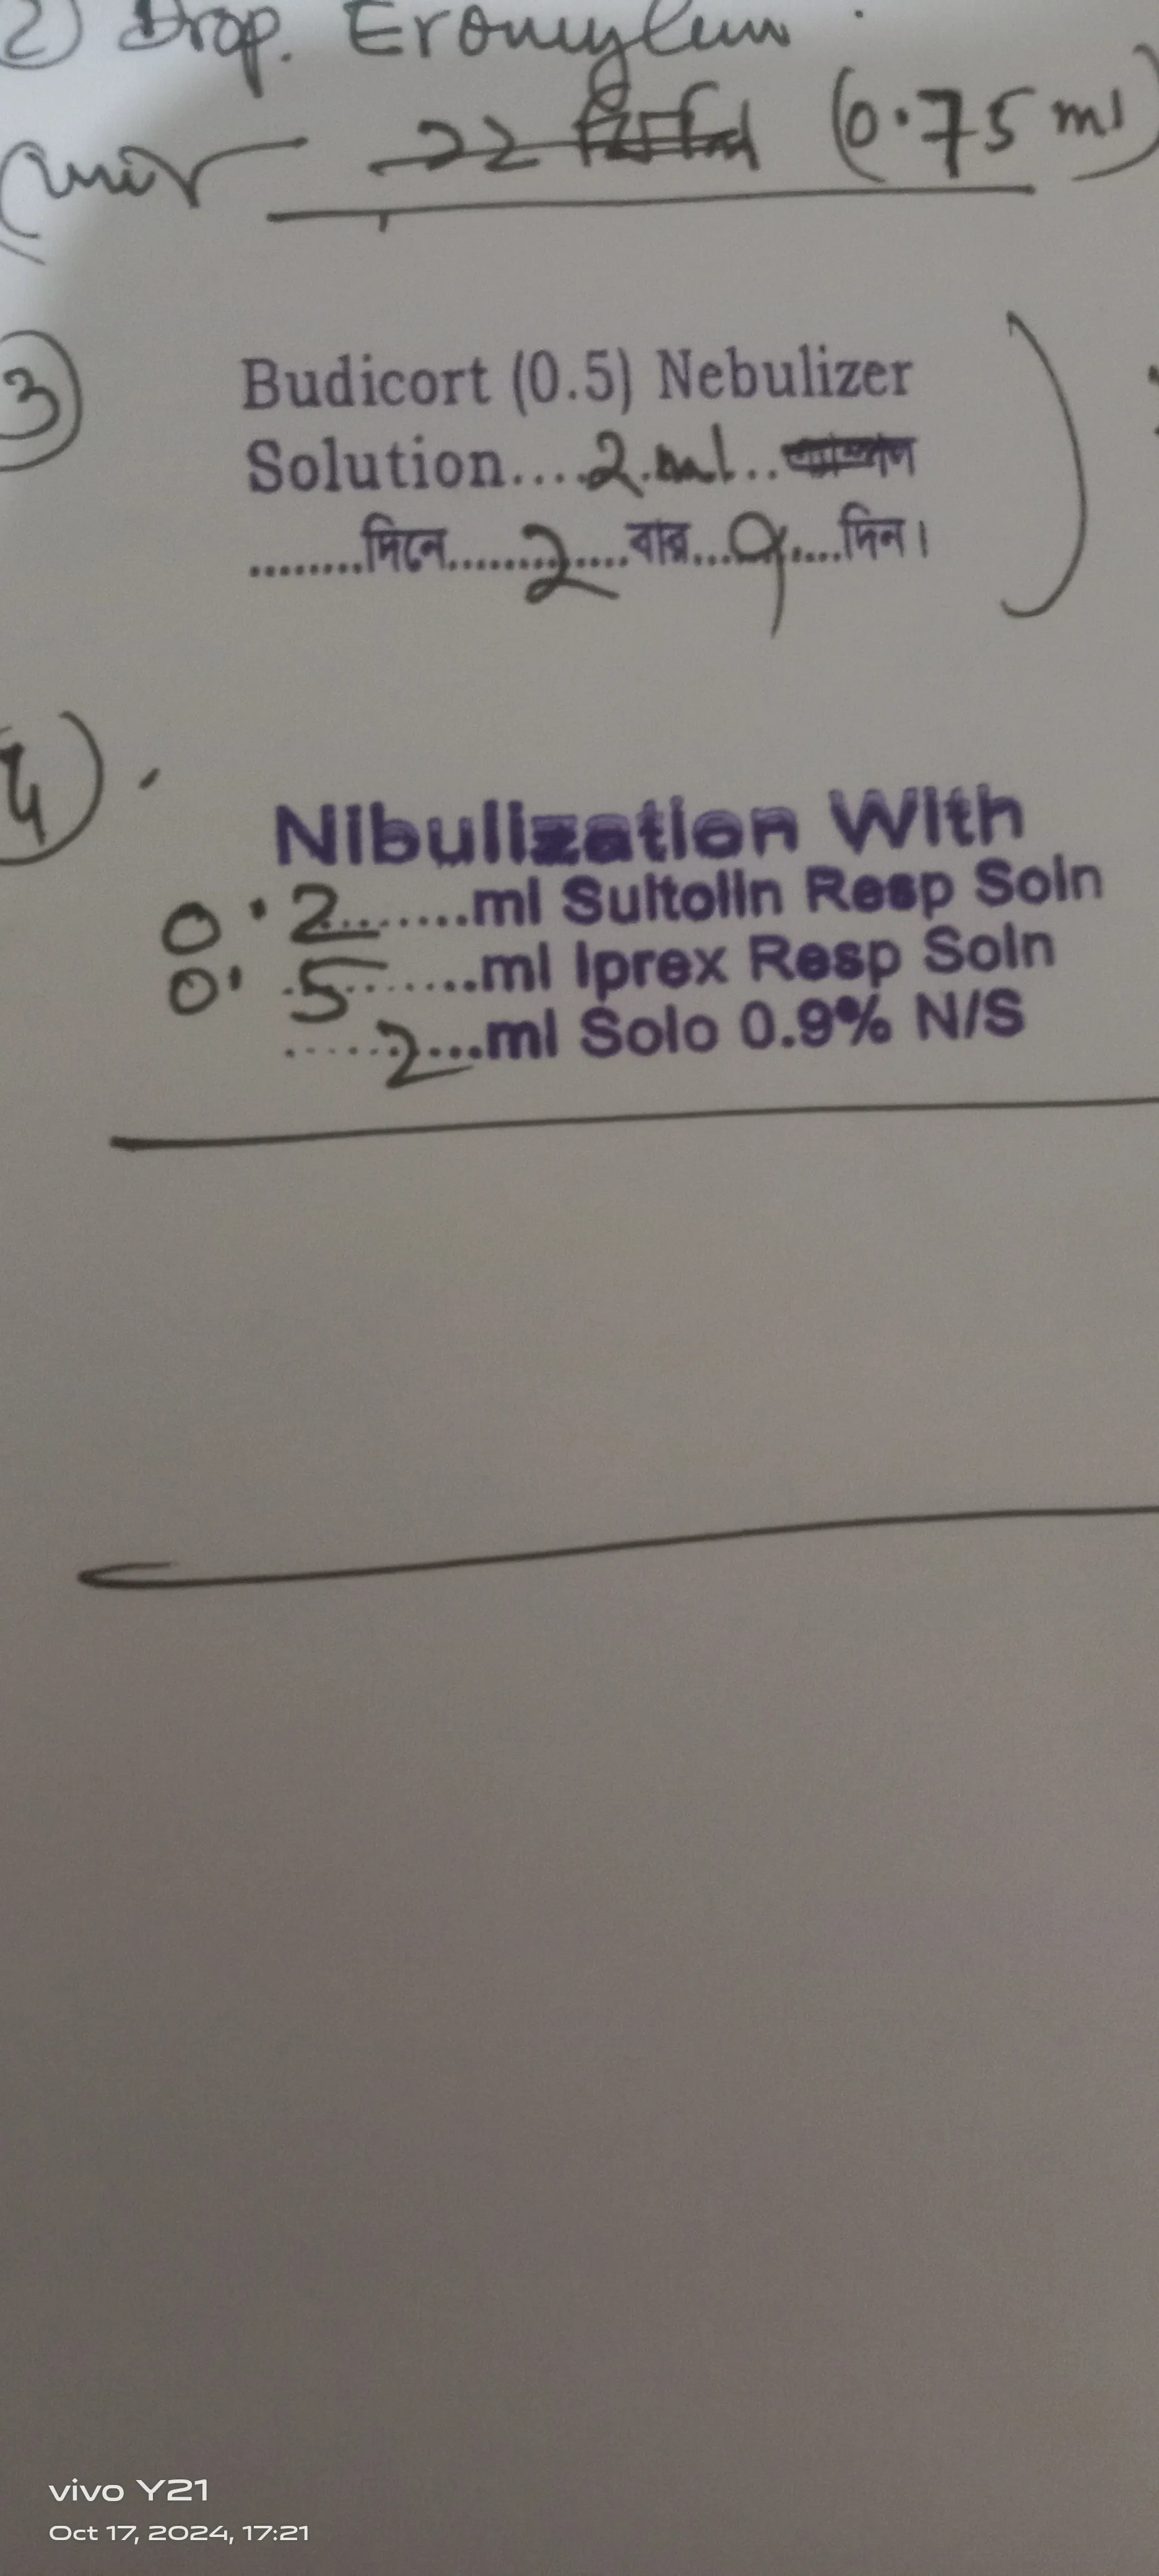 2) Drop.
(0.75 ml)
3
Budicort (0.5) Nebulizer
Solution....2 ml..
........দিনে.......2.....বার...৭....দিন।
4)
Nibulization With
0.2.......ml Sultolin Resp Soln
0.5.......ml Iprex Resp Soln
......2...ml Solo 0.9% N/S
vivo Y21
Oct 17, 2024, 17:21